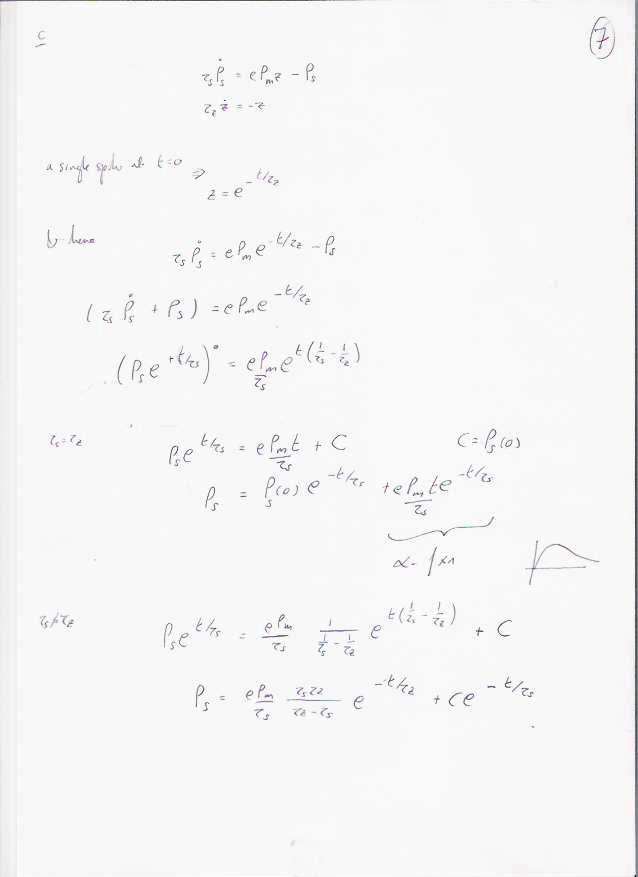 c
7
τ_s Ṗ_s = e P_m z − P_s
τ_z ż = −z
a single spike at t=0 ⇒
z = e^{−t/τ_z}
hence
τ_s Ṗ_s = e P_m e^{−t/τ_z} − P_s
(τ_s Ṗ_s + P_s) = e P_m e^{−t/τ_z}
(P_s e^{+t/τ_s})^• = e P_m/τ_s e^{t(1/τ_s − 1/τ_z)}
τ_s = τ_z
P_s e^{t/τ_s} = e P_m t/τ_s + C
C = P_s(0)
P_s = P_s(0) e^{−t/τ_s} + e P_m/τ_s t e^{−t/τ_s}
α- fxn
τ_s ≠ τ_z
P_s e^{t/τ_s} = e P_m/τ_s 1/(1/τ_s − 1/τ_z) e^{t(1/τ_s − 1/τ_z)} + C
P_s = e P_m/τ_s τ_s τ_z/(τ_z − τ_s) e^{−t/τ_z} + C e^{−t/τ_s}